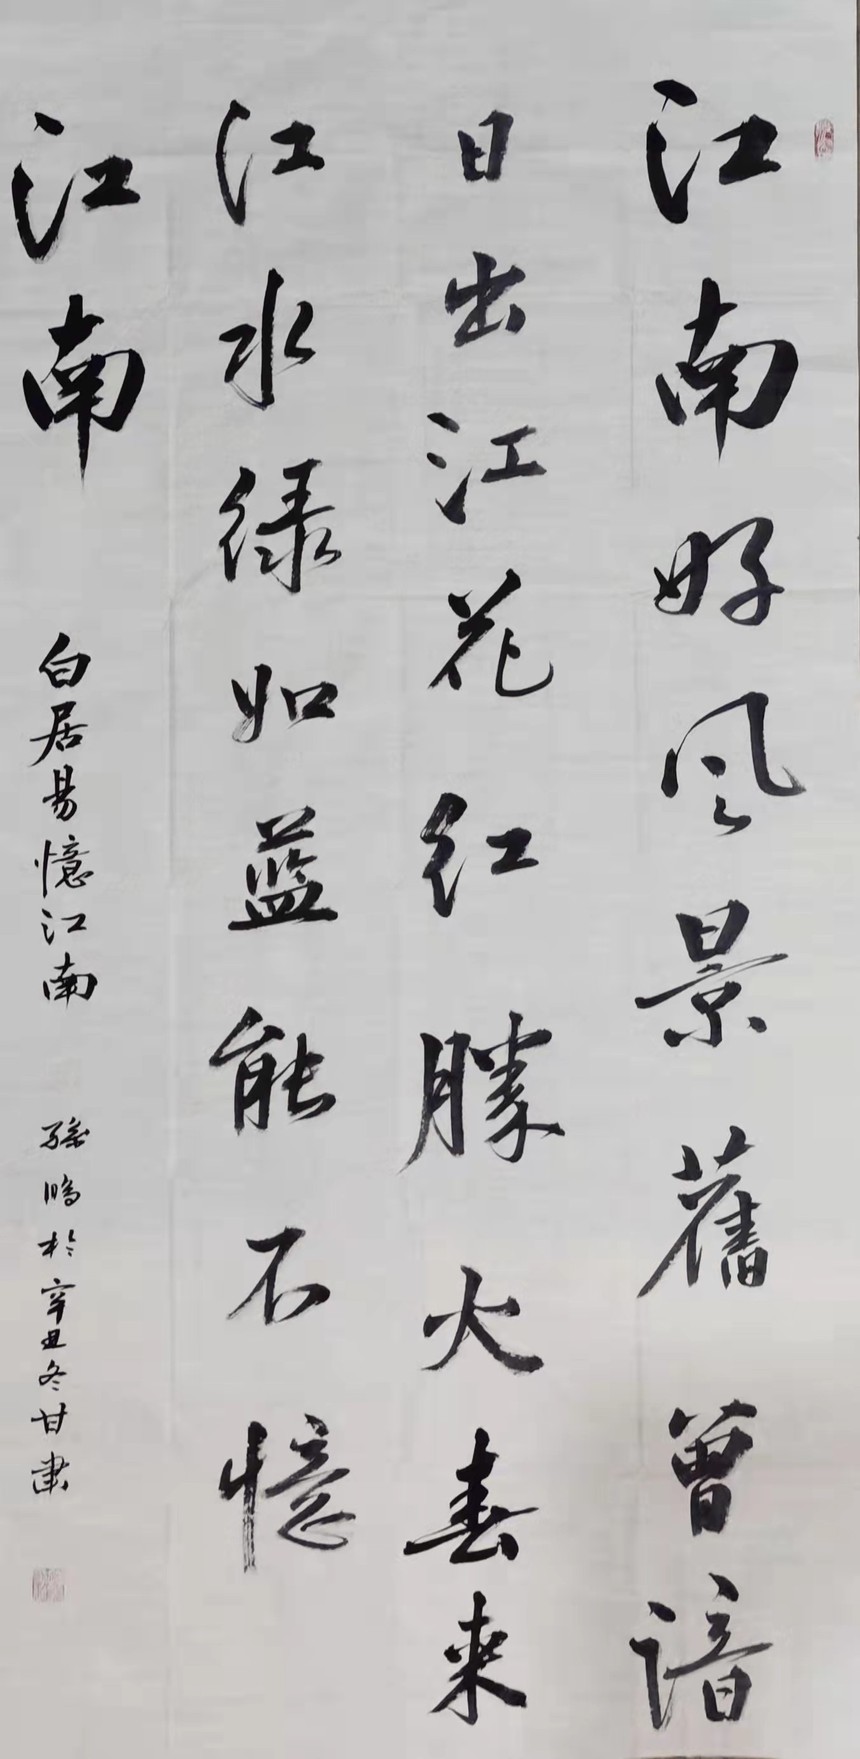 江南好风景舊曾諳
日出江花红勝火春来
江水绿如蓝能不憶
江南
白居易憶江南
孫鹏於辛丑冬甘肃